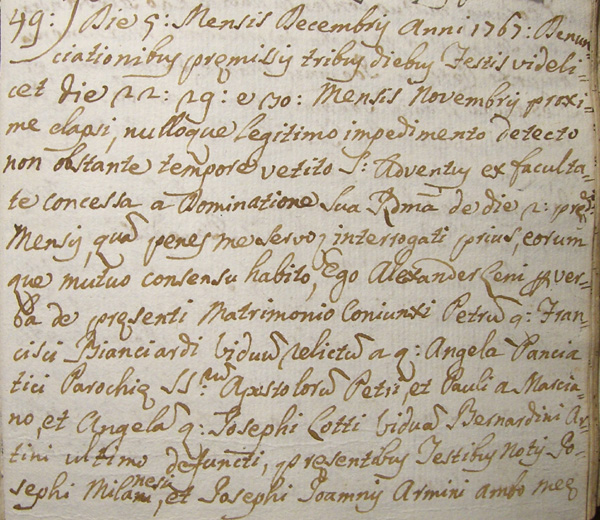 49: Die 5: Mensis Decembrÿ Anni 1767: Denun-
ciationibus premissis tribus diebus Festis videli-
cet die 22: 29: e 30: Mensis Novembrÿ proxi-
me elapsi, nulloque legitimo impedimento detecto
non obstante tempore vetito S: Adventus ex faculta-
te concessa a Dominatione sua Rdma de die 2: pred:
Mensis, qua penes me servo, interrogati prius, eorum
que mutuo consensu habito, Ego Alexander Ceni p ver-
ba de presenti Matrimonio Coniunxi Petru q: Fran-
cisci Bianciardi viduu relictu a q: Angela Pancia
tici Parochie SS:ru Apostoloru Petri, et Pauli a Marcia-
no, et Angela q: Josephi Cotti vidua Bernardini Ar-
tini ultimo defuncti, presentibus Testibus Notis Jo-
sephi Milanesi, et Josephi Joannis Armini ambo mee